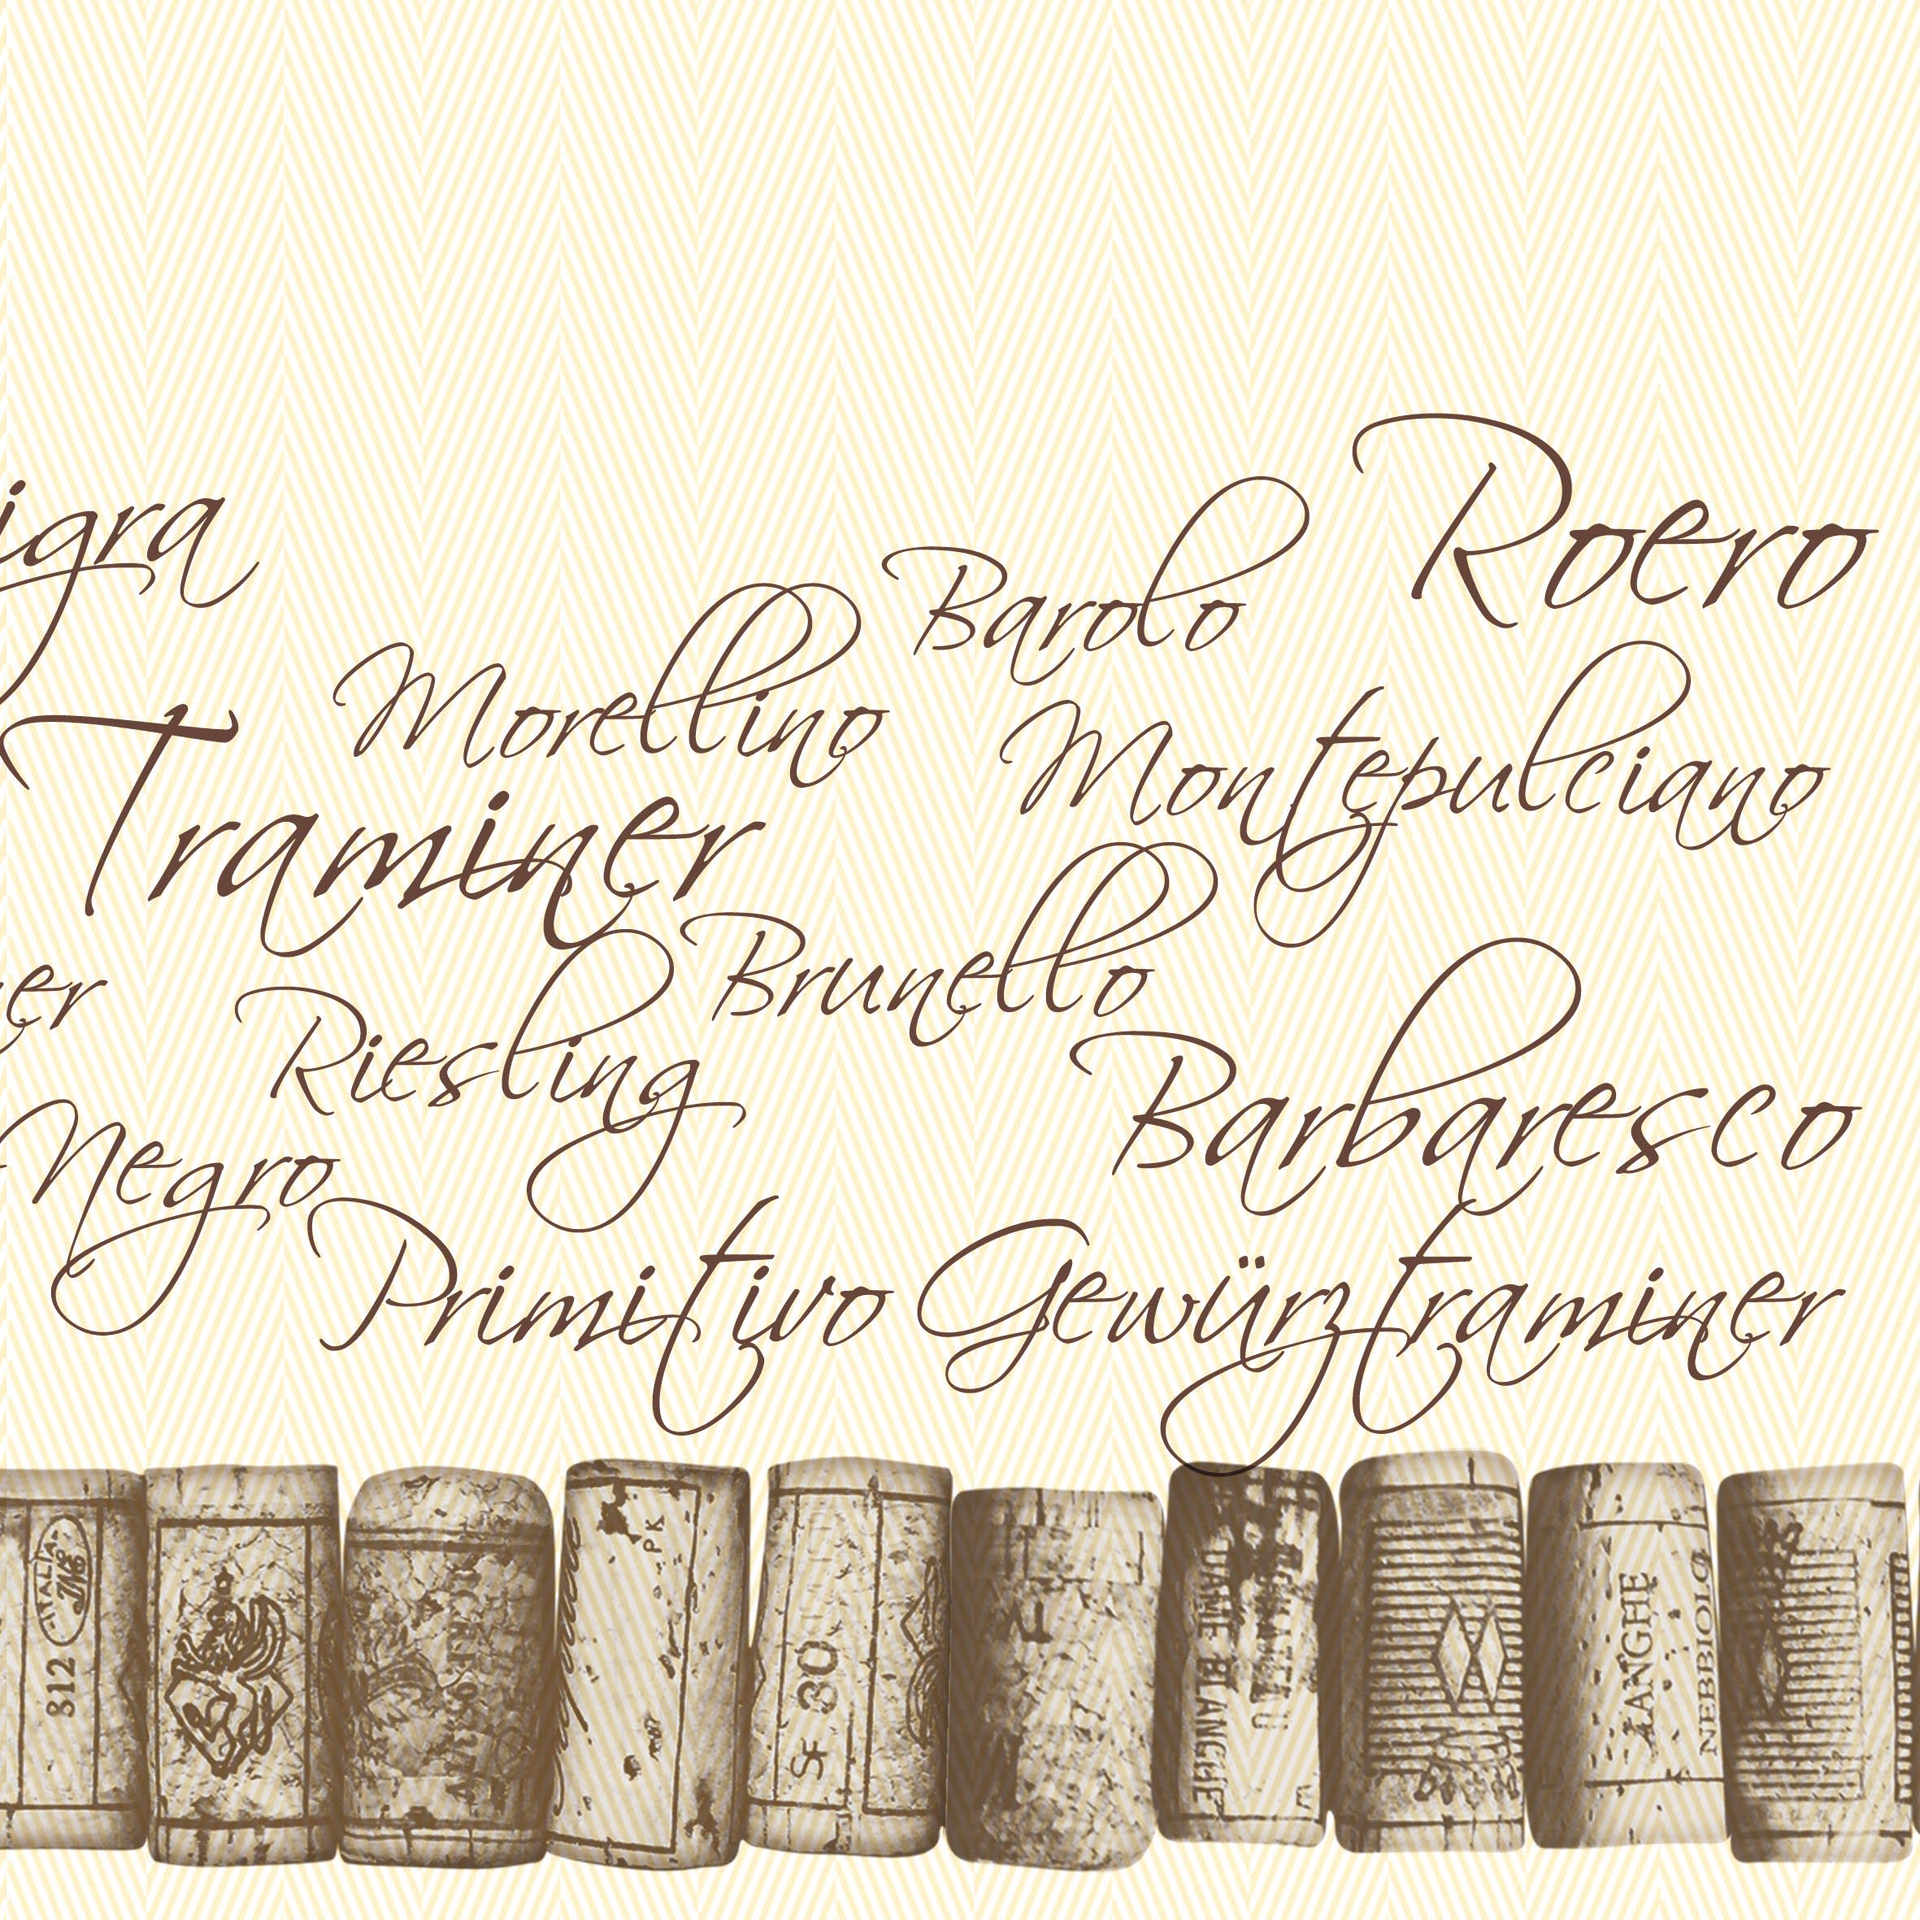 igra
Roero
Barolo
Morellino
Montepulciano
Traminer
Brunello
er
Riesling
Barbaresco
Negro
Primitivo
Gewürztraminer
ITALIA
812
PK
SF 30
BLANGHE
LANGHE
NEBBIOLO